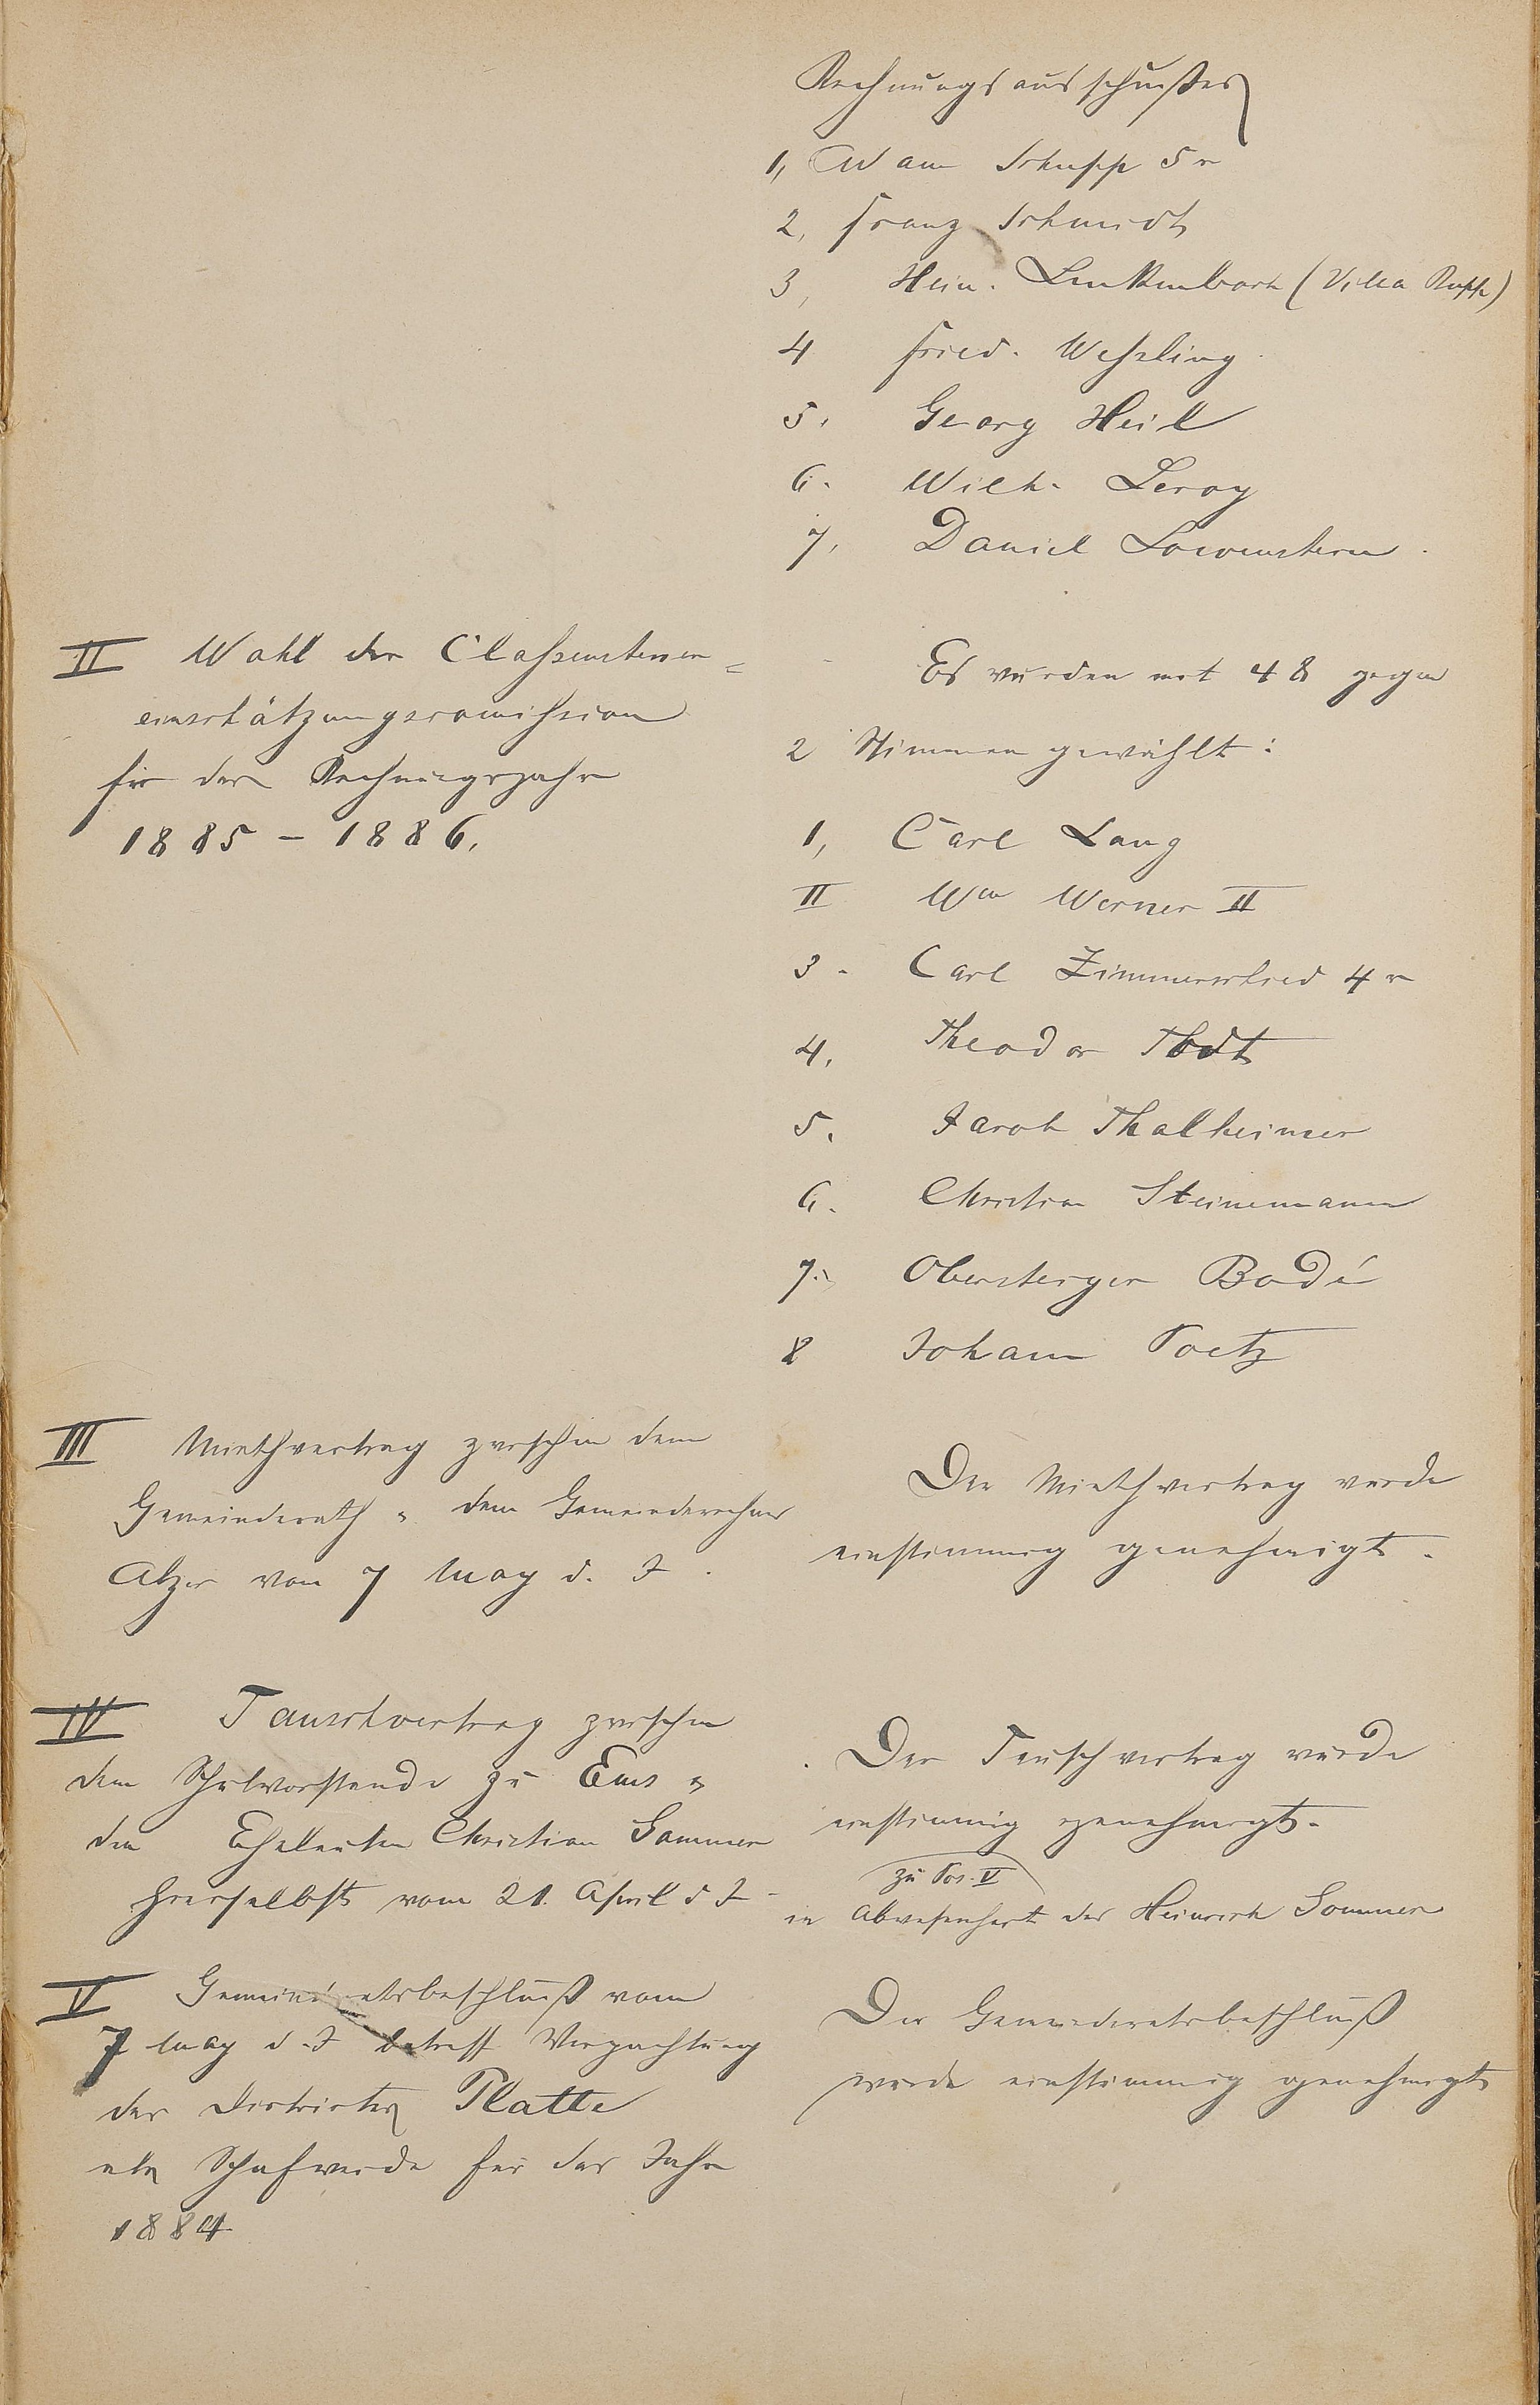 Rechnungsausschusses
1, Adam Schupp 5r
2, Franz Schmidt
3, Hein. Linkenbach (Villa Rupp)
4 Fried. Weßling
5. Georg Heil
6. Wilh. Leroy
7, Daniel Löwenstein.
II Wahl der Claßensteuer=
einschätzungscomißion
für das Rechnungsjahr
1885 – 1886.
Es wurden mit 48 gegen
2 Stimmen gewählt:
1, Carl Lang
II Wm Werner II
3. Carl Zimmerschied 4r
4. Theodor Thodt
5. Jacob Thalheimer
6. Christian Steinemann
7. Obersteiger Bodé
8 Johann Poetz
III Miethvertrag zwischen dem
Gemeinderath u dem Gemeinderechner
Alzer vom 7 May d. J.
Der Miethvertrag wurde
einstimmig genehmigt.
IV Tauschvertrag zwischen
dem Schulvorstande zu Ems u
den Eheleuten Christian Sommer
hierselbst vom 21. April d J
Der Tauschvertrag wurde
einstimmig genehmigt.
zu Pos. V
in Abwesenheit des Heinrich Sommer
V Gemeinderatsbeschluß vom
7 May d. J betreff Verpachtung
des Districtes Platte
als Schafweide für das Jahr
1884
Der Gemeinderatsbeschluß
wurde einstimmig genehmigt